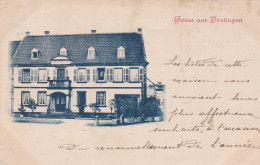 Gruss aus Drulingen
Les hôtes de cette
maison vous
envoient leurs
plus affectueux
souhaits, à l'occasion
Du renouvellement de l'année